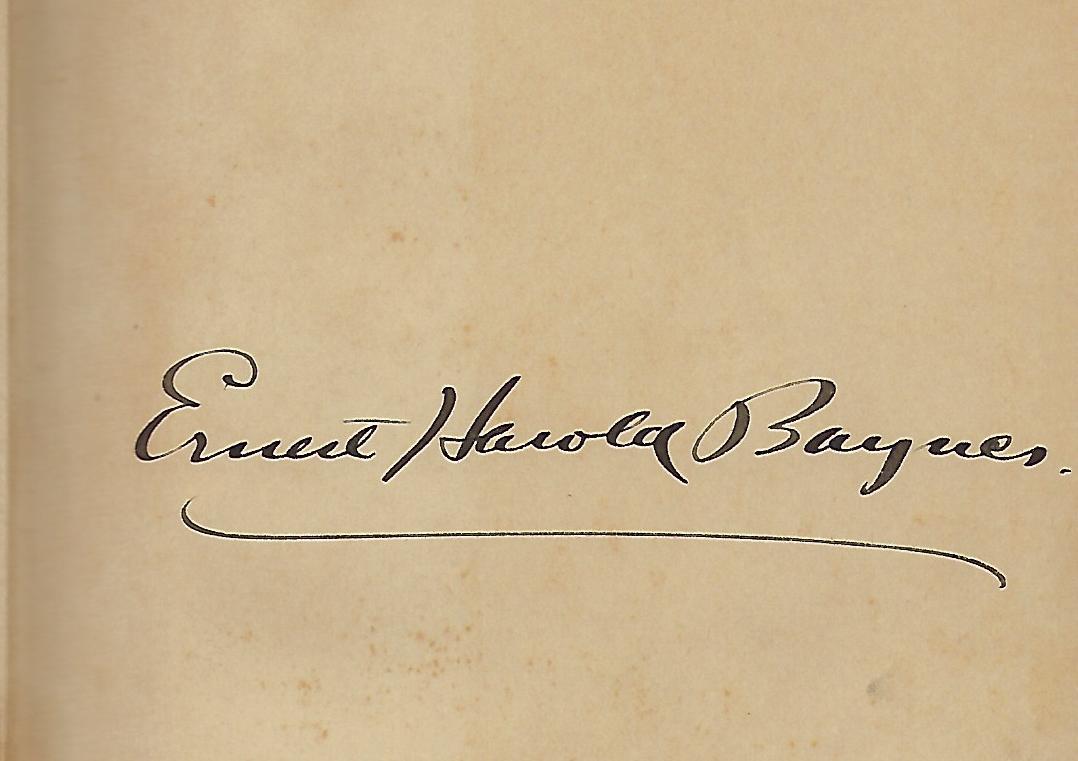 Ernest Harold Baynes.